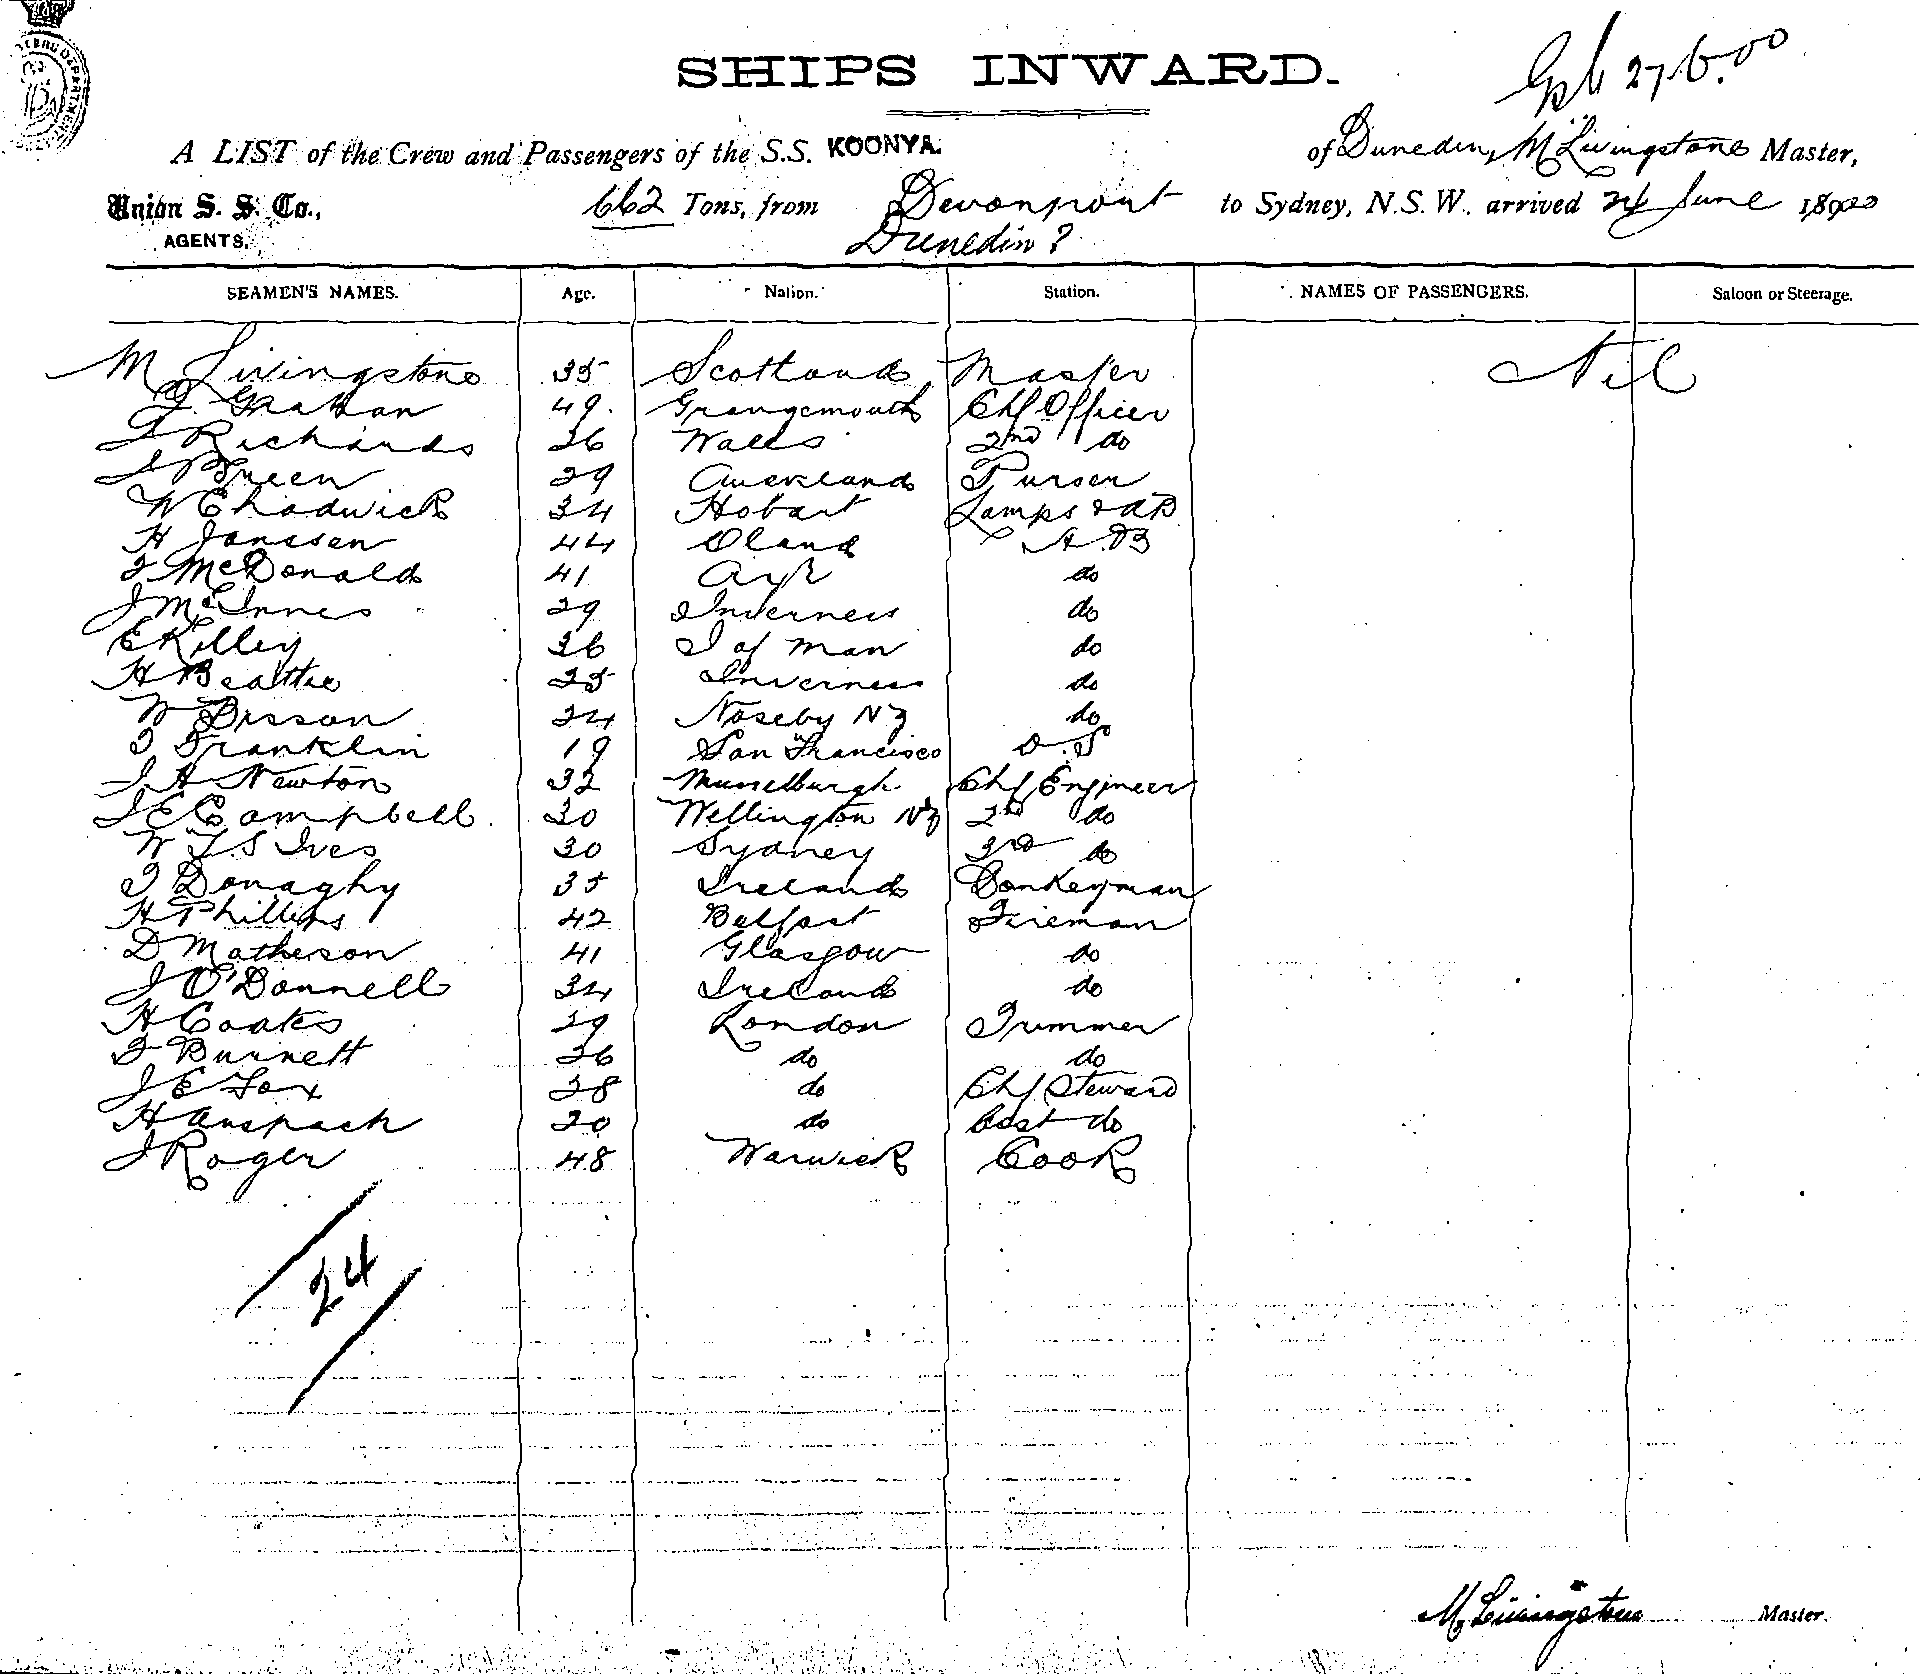 SHIPS INWARD.
27.6.00
A LIST of the Crew and Passengers of the S.S. KOONYA. of Dunedin, M Livingstone Master,
Union S. S. Co., 662 Tons, from Devonport to Sydney, N.S.W. arrived June
AGENTS. Dunedin ?
SEAMEN'S NAMES. Age. Nation. Station. NAMES OF PASSENGERS. Saloon or Steerage.
M Livingstone 35 Scotland Master Nil
Grattan 49. Grangemouth Chf Officer
Richards 26 Wales 2nd do
J Breen 29 Auckland Purser
W Chadwick 34 Hobart Lamps & AB
H Janssen 44 Oland A.B
McDonald 41 Ayr do
J McInnes 29 Inverness do
E Killey 36 I of Man do
H Beattie 25 Inverness do
W Bisson 24 Naseby NZ do
Franklin 19 San Francisco O.S
J A Newton 32 Musselburgh Chf Engineer
J E Campbell 30 Wellington NZ 2nd do
W T. S Ives 30 Sydney 3rd do
Donaghy 35 Ireland Donkeyman
H Phillips 42 Belfast Fireman
D Matheson 41 Glasgow do
J O'Donnell 34 Ireland do
H Coates 29 London Trimmer
Burnett 26 do do
J E Fox 28 do Chf Steward
H Anspach 20 do do
J Roger 48 Warwick Cook
24
M Livingstone Master.